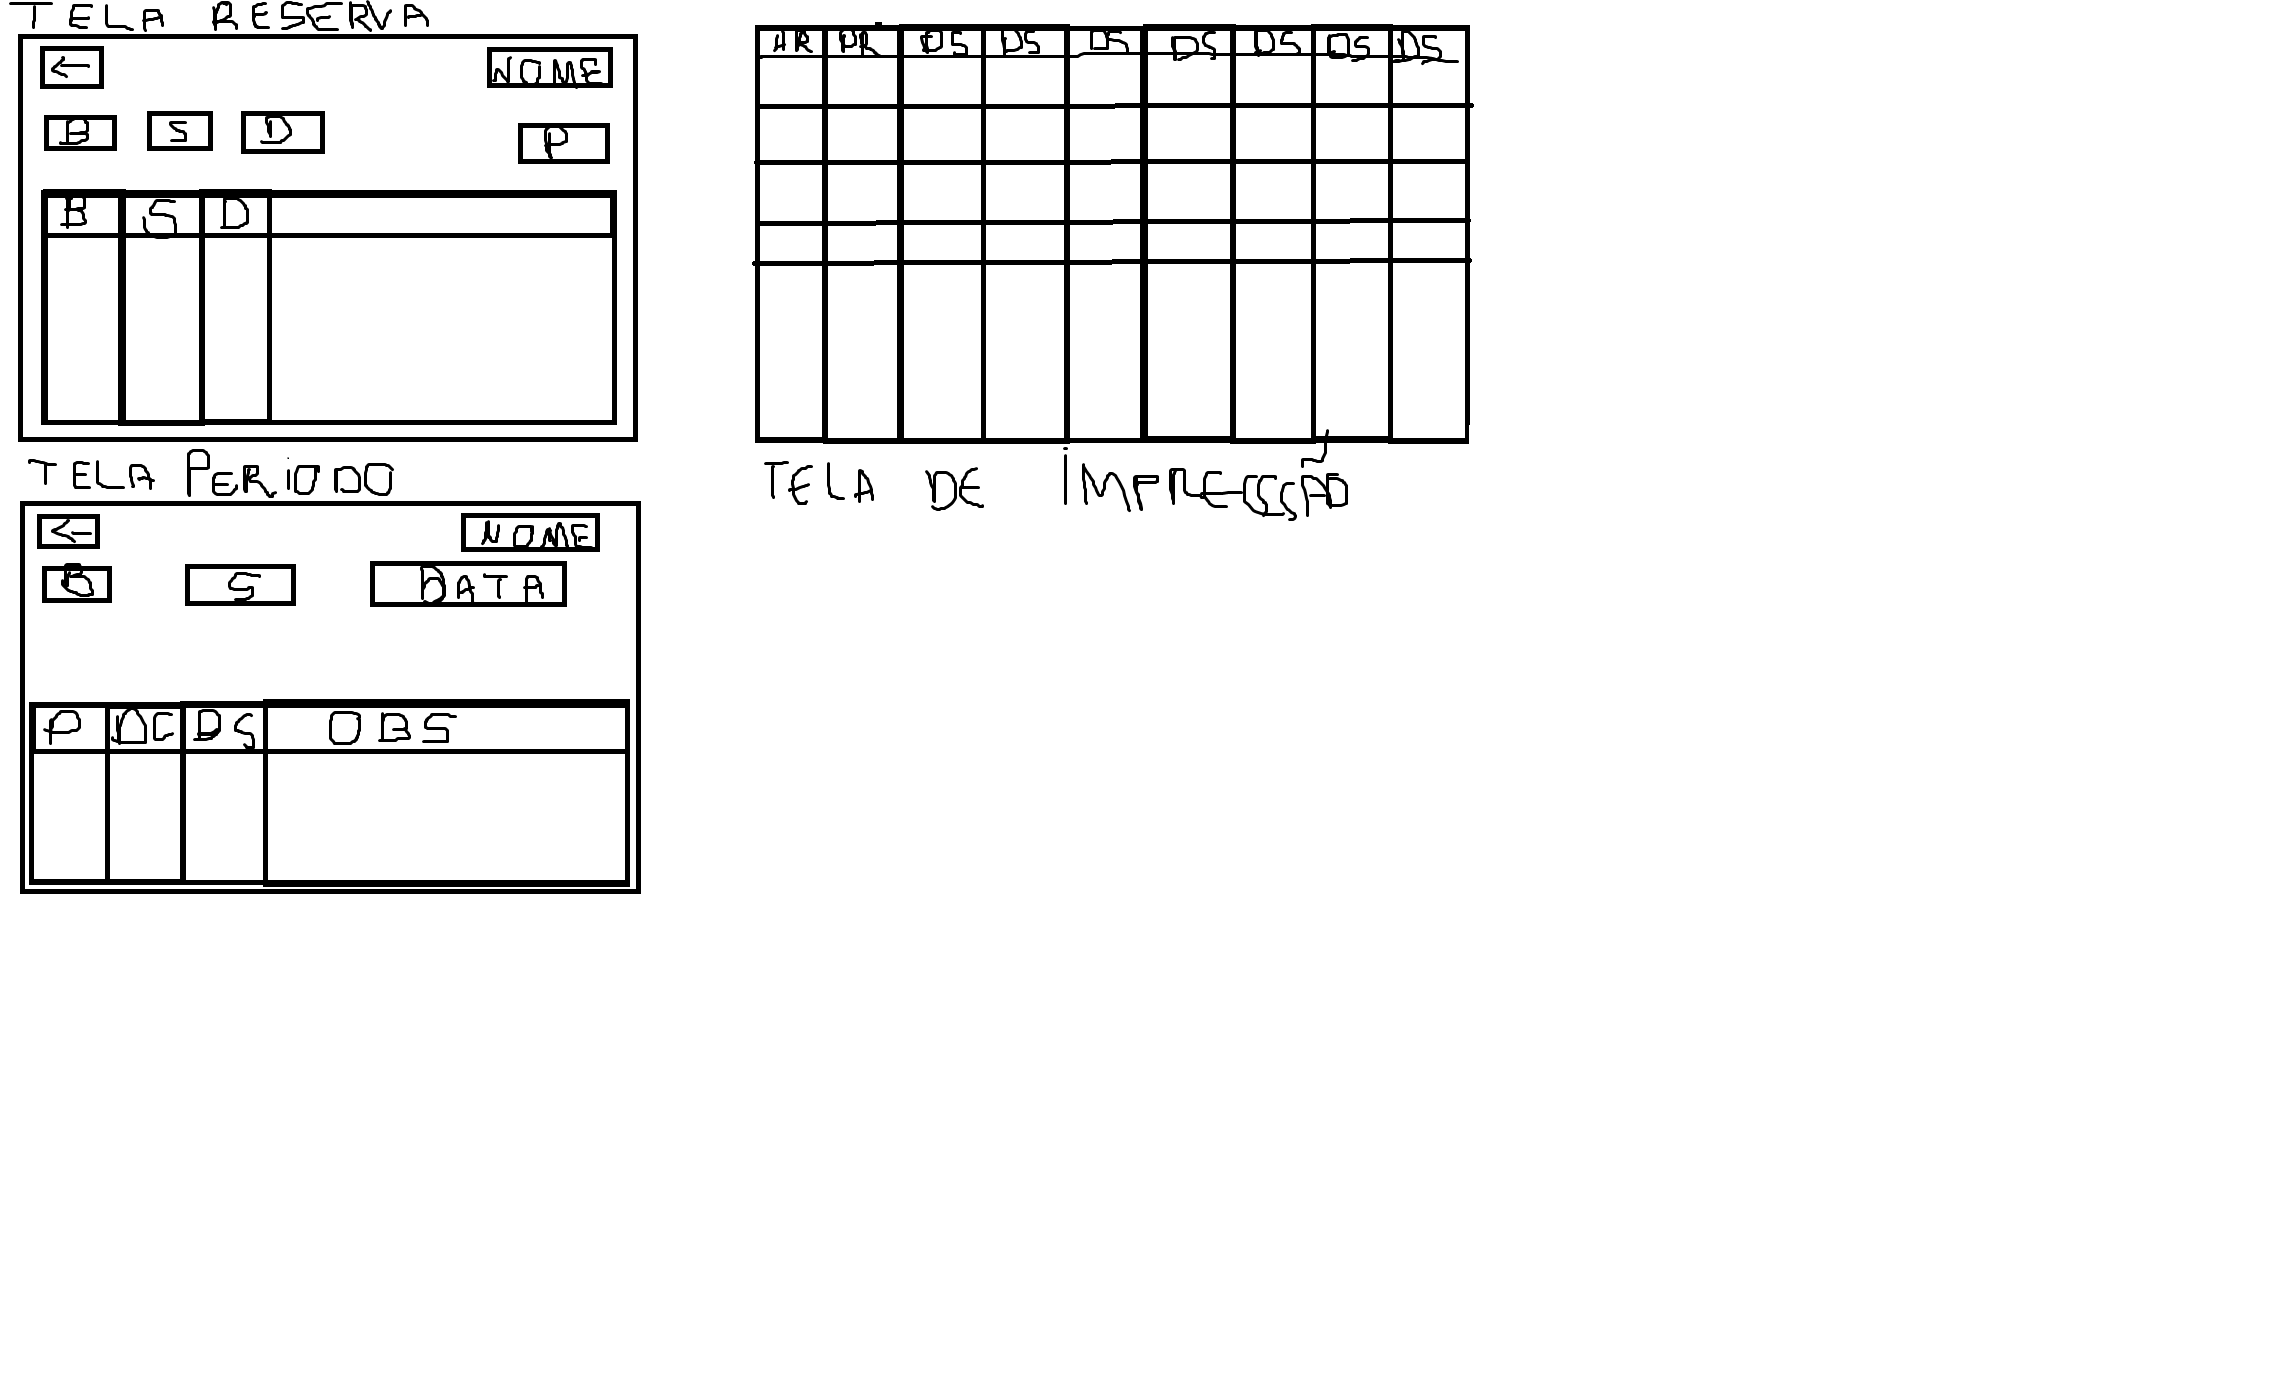 TELA RESERVA
← NOME
B S D P
B S D
TELA PERIODO
← NOME
B S DATA
P DC DS OBS
HR PR DS DS DS DS DS DS DS
TELA DE IMPRESSÃO